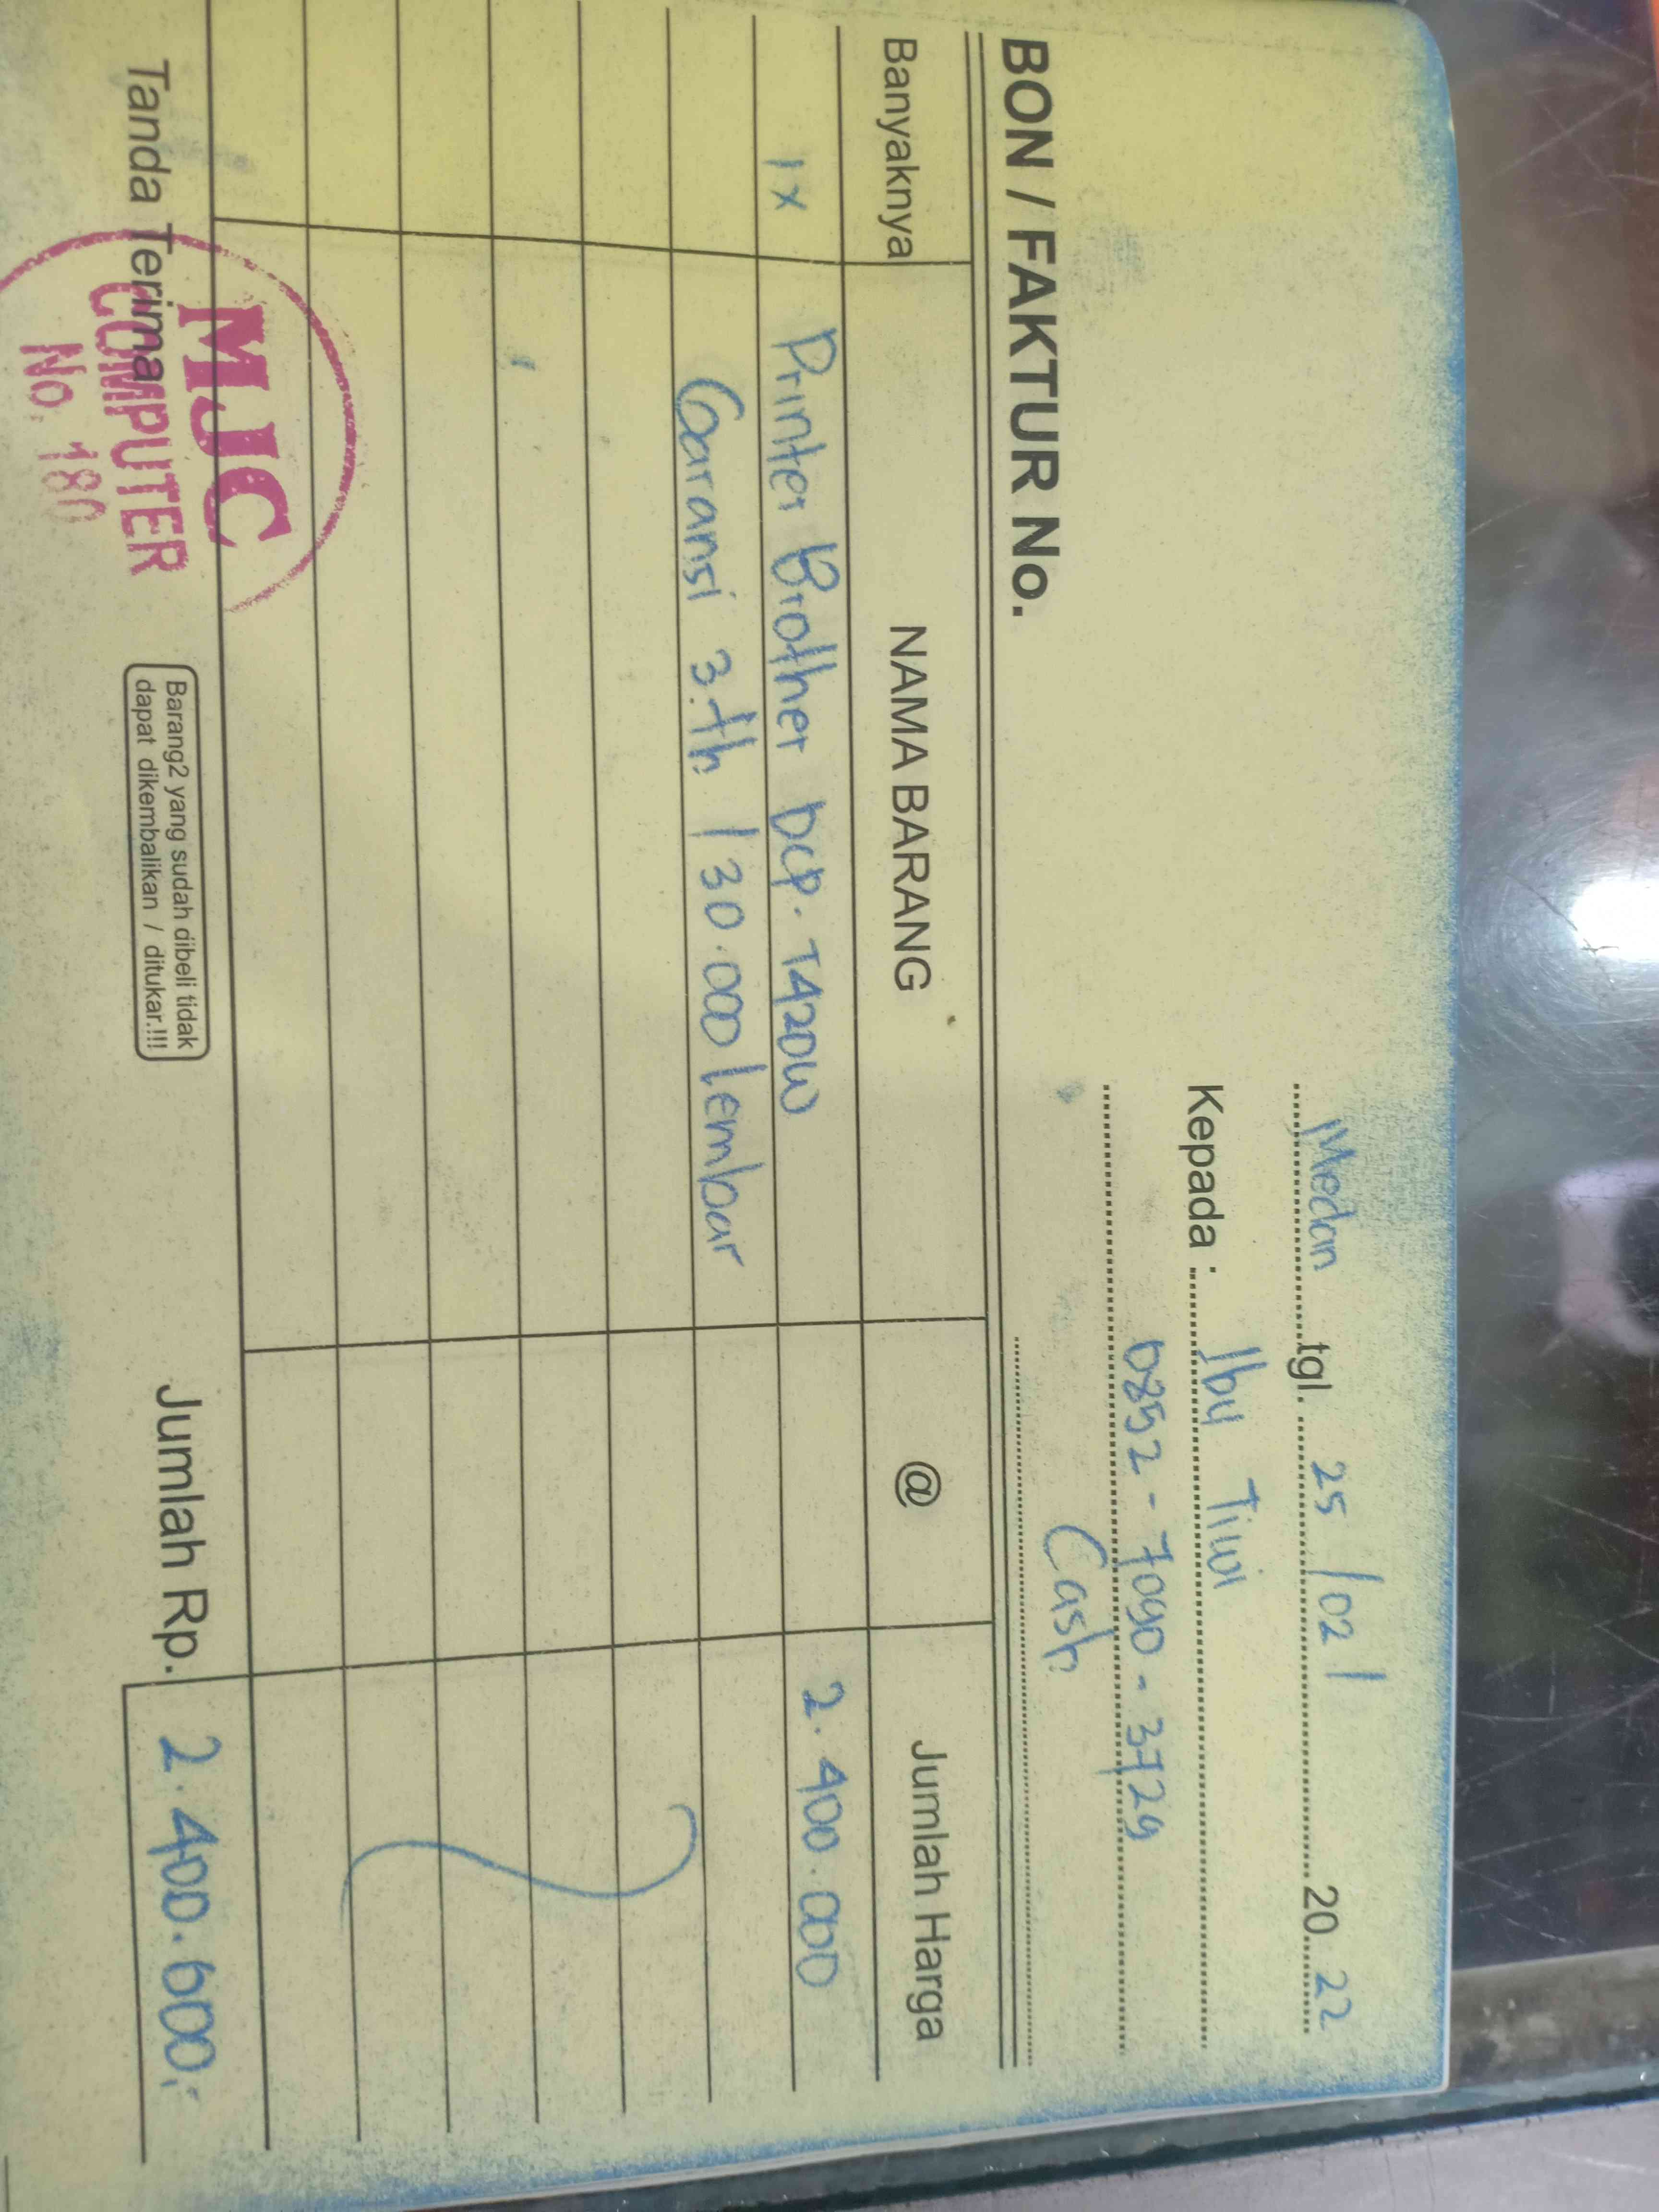 Medan tgl. 25 / 02 / 20 22
Kepada : Ibu Tiwi
0852 - 7090 - 3729
Cash
BON / FAKTUR No.
Banyaknya NAMA BARANG @ Jumlah Harga
1 x Printer Brother DCP. T420W 2.400.000
Garansi 3.th / 30.000 lembar
Tanda Terima
MJC
COMPUTER
No. 180
Barang2 yang sudah dibeli tidak
dapat dikembalikan / ditukar.!!!
Jumlah Rp. 2.400.600,-